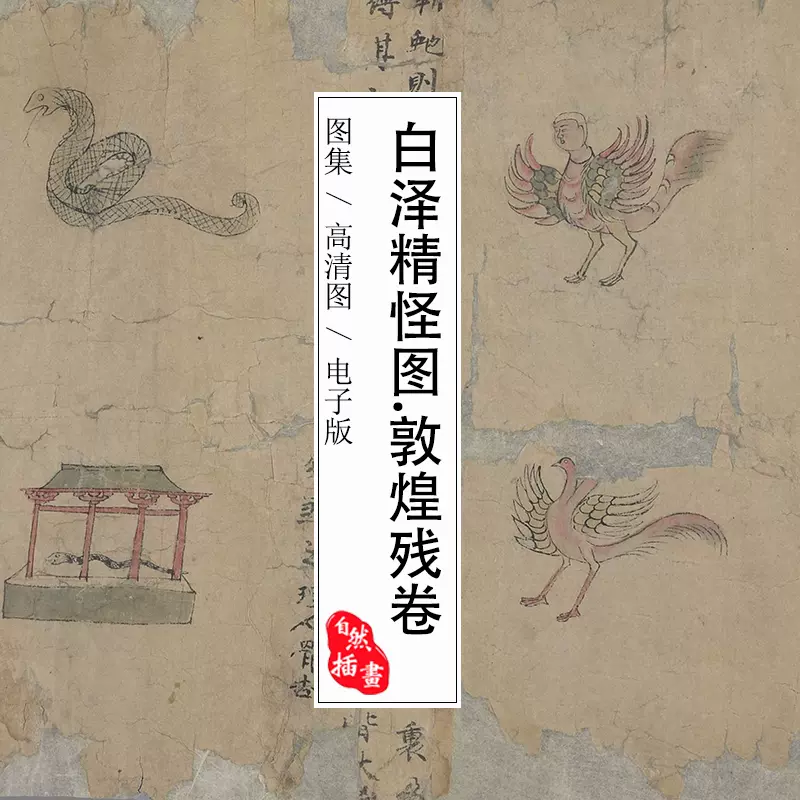 白泽精怪图·敦煌残卷
图集 / 高清图 / 电子版
自然
插畫
則